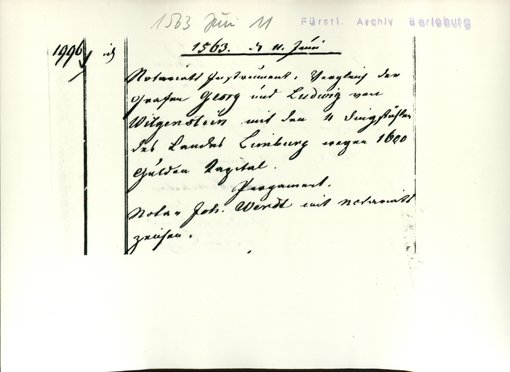 1563 Juni 11
Fürstl. Archiv Berleburg
1996
1563. d 11. Juni
Notariats Instrument. Vergleich der
Grafen Georg und Ludwig von
Witgenstein mit den 4 Dingstühlen
des Landes Limburg wegen 1600
Gulden Kapital.
Pergament.
Notar Joh. Werdt mit Notariats
zeichen.